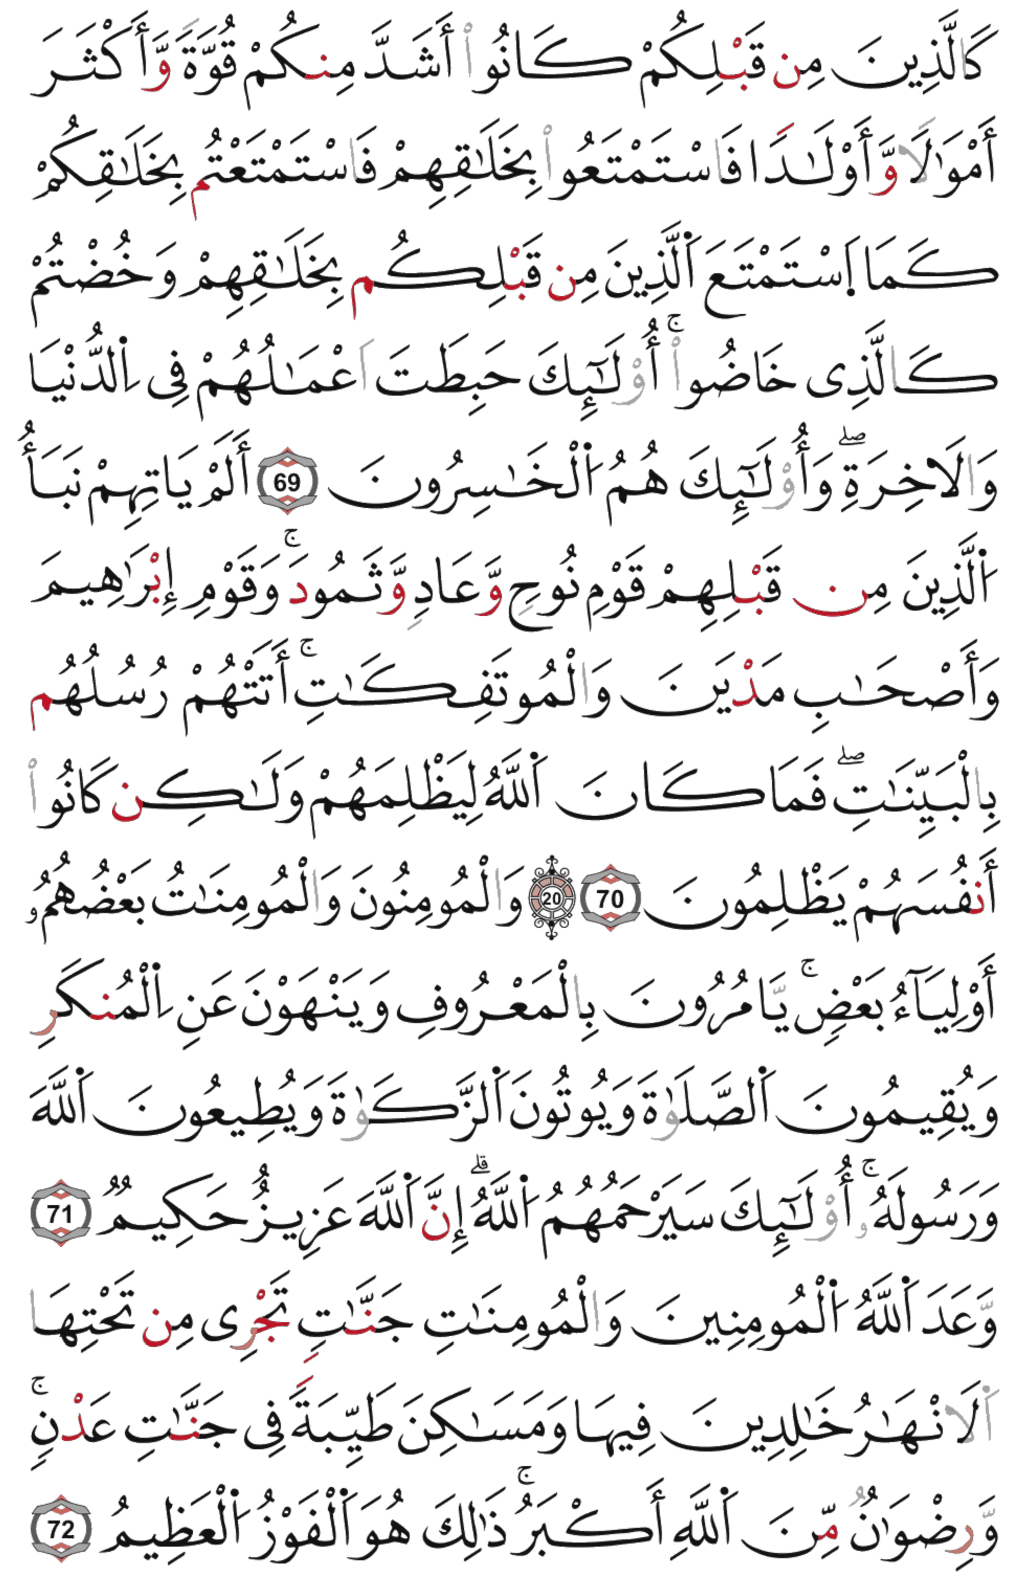 كَالَّذِينَ مِن قَبْلِكُمْ كَانُوا۟ أَشَدَّ مِنكُمْ قُوَّةً وَّأَكْثَرَ
أَمْوَٰلًا وَّأَوْلَٰدًا فَاسْتَمْتَعُوا۟ بِخَلَٰقِهِمْ فَاسْتَمْتَعْتُم بِخَلَٰقِكُمْ
كَمَا اَ۪سْتَمْتَعَ اَ۬لَّذِينَ مِن قَبْلِكُم بِخَلَٰقِهِمْ وَخُضْتُمْ
كَالَّذِى خَاضُوا۟ۚ أُوْلَٰٓئِكَ حَبِطَتَ اَعْمَٰلُهُمْ فِى اِ۬لدُّنْيَا
وَالَاخِرَةِۖ وَأُوْلَٰٓئِكَ هُمُ اُ۬لْخَٰسِرُونَ 69 أَلَمْ يَاتِهِمْ نَبَأُ
اُ۬لَّذِينَ مِن قَبْلِهِمْ قَوْمِ نُوحٍ وَّعَادٍ وَّثَمُودَۚ وَقَوْمِ إِبْرَٰهِيمَ
وَأَصْحَٰبِ مَدْيَنَ وَالْمُوتَفِكَٰتِۚ أَتَتْهُمْ رُسُلُهُم
بِالْبَيِّنَٰتِۖ فَمَا كَانَ اَ۬للَّهُ لِيَظْلِمَهُمْ وَلَٰكِن كَانُوا۟
أَنفُسَهُمْ يَظْلِمُونَ 70 20 وَالْمُومِنُونَ وَالْمُومِنَٰتُ بَعْضُهُمُۥ
أَوْلِيَآءُ بَعْضٍۚ يَّامُرُونَ بِالْمَعْرُوفِ وَيَنْهَوْنَ عَنِ اِ۬لْمُنكَرِ
وَيُقِيمُونَ اَ۬لصَّلَوٰةَ وَيُوتُونَ اَ۬لزَّكَوٰةَ وَيُطِيعُونَ اَ۬للَّهَ
وَرَسُولَهُۥٓۚ أُوْلَٰٓئِكَ سَيَرْحَمُهُمُ اُ۬للَّهُۗ إِنَّ اَ۬للَّهَ عَزِيزٌ حَكِيمٌ 71
وَّعَدَ اَ۬للَّهُ اُ۬لْمُومِنِينَ وَالْمُومِنَٰتِ جَنَّٰتٍ تَجْرِى مِن تَحْتِهَا
اَ۬لَانْهَٰرُ خَٰلِدِينَ فِيهَا وَمَسَٰكِنَ طَيِّبَةً فِى جَنَّٰتِ عَدْنٍۚ
وَّرِضْوَٰنٌ مِّنَ اَ۬للَّهِ أَكْبَرُۚ ذَٰلِكَ هُوَ اَ۬لْفَوْزُ اُ۬لْعَظِيمُ 72